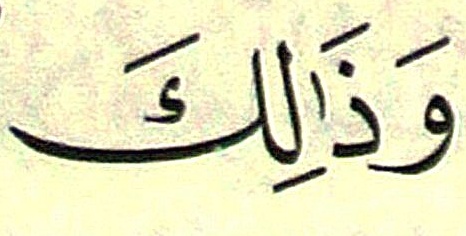 وَذَٰلِكَ